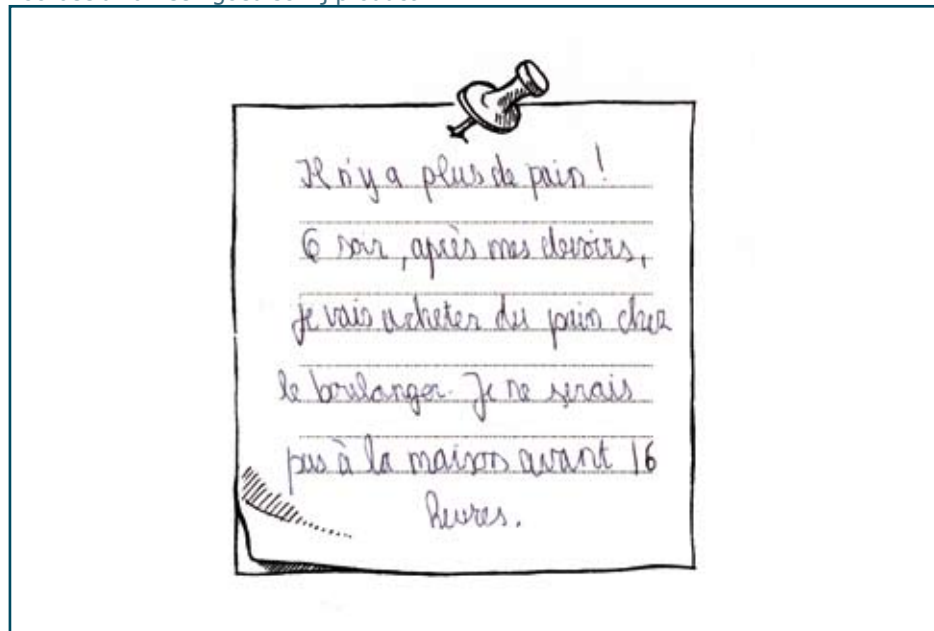 Il n'y a plus de pain !
Ce soir, après mes devoirs,
je vais acheter du pain chez
le boulanger. Je ne serais
pas à la maison avant 16
heures.